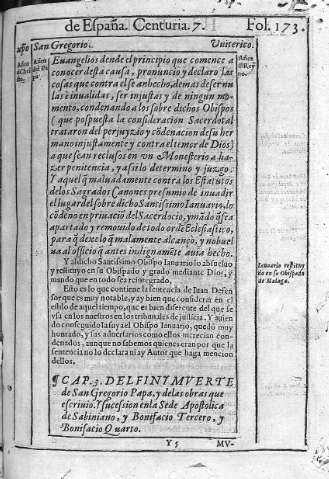 de España. Centuria. 7. Fol. 173.
San Gregorio. Vuiterico.
Euangelios dende el principio que comence a
conocer desta causa, pronuncio y declaro las
cosas que contra el se an hecho, demas de ser nu
las e inualidas, ser injustas y de ningun mo
mento, condenando a los sobre dichos Obispos
( que pospuesta la consideracion Sacerdotal
trataron del perjuyzio y cōdenacion de su her
mano injustamente y contra el temor de Dios)
a que sean reclusos en vn Monesterio a ha-
zer penitencia, y assi lo determino y juzgo.
Y aquel q̃ maluadamente contra los Estatutos
de los Sagrados Canones presumio de inuadir
el lugar del sobre dicho Santissimo Ianuario, lo
cōdeno en priuaciō del Sacerdocio, y mādo q̃ sea
apartado y remouido de todo ordē Eclesiastico,
para q̃ dexe lo q̃ malamente alcançò, y no buel
ua al officio q̃ antes indignamēte auia hecho.
Y al dicho Santissimo Obispo Ianuario lo absueluo
y restituyo en su Obispado y grado mediante Dios, y
mando que en todo sea reintegrado.
Esto es lo que contiene la sentencia de Iuan Defen
sor que es muy notable, y ay bien que considerar en el
estilo de aquel tiempo, que es bien diferente del que se
vsa en los nuestros en los tribunales de justicia. Y assi en
do conseguido assi el Obispo Ianuario, quedó muy
honrado, y sus aduersarios como ellos merecian conde-
nados, aunque no sabemos quienes eran por que la
sentencia no lo declara ni ay Autor que haga mencion
dellos.
Ianuario restituy
do en su Obispado
de Malaga.
¶ CAP. 3. DEL FIN Y MVERTE
de San Gregorio Papa, y de las obras que
escriuio. Y sucession en la Sede Apostolica
de Sabiniano, y Bonifacio Tercero, y
Bonifacio Quarto.
Y 5 MV-